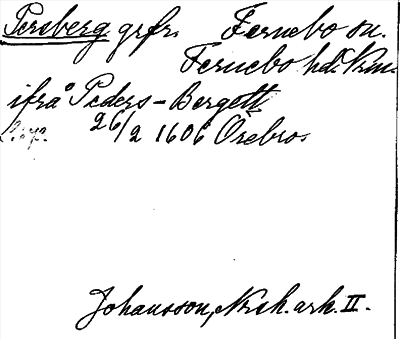 Persberg grfr. Fernebo sn.
Fernebo hd. Vrm.
ifrå Peders-Bergett
26/2 1606 Örebro.
Johansson, Nrsk. ark. II.